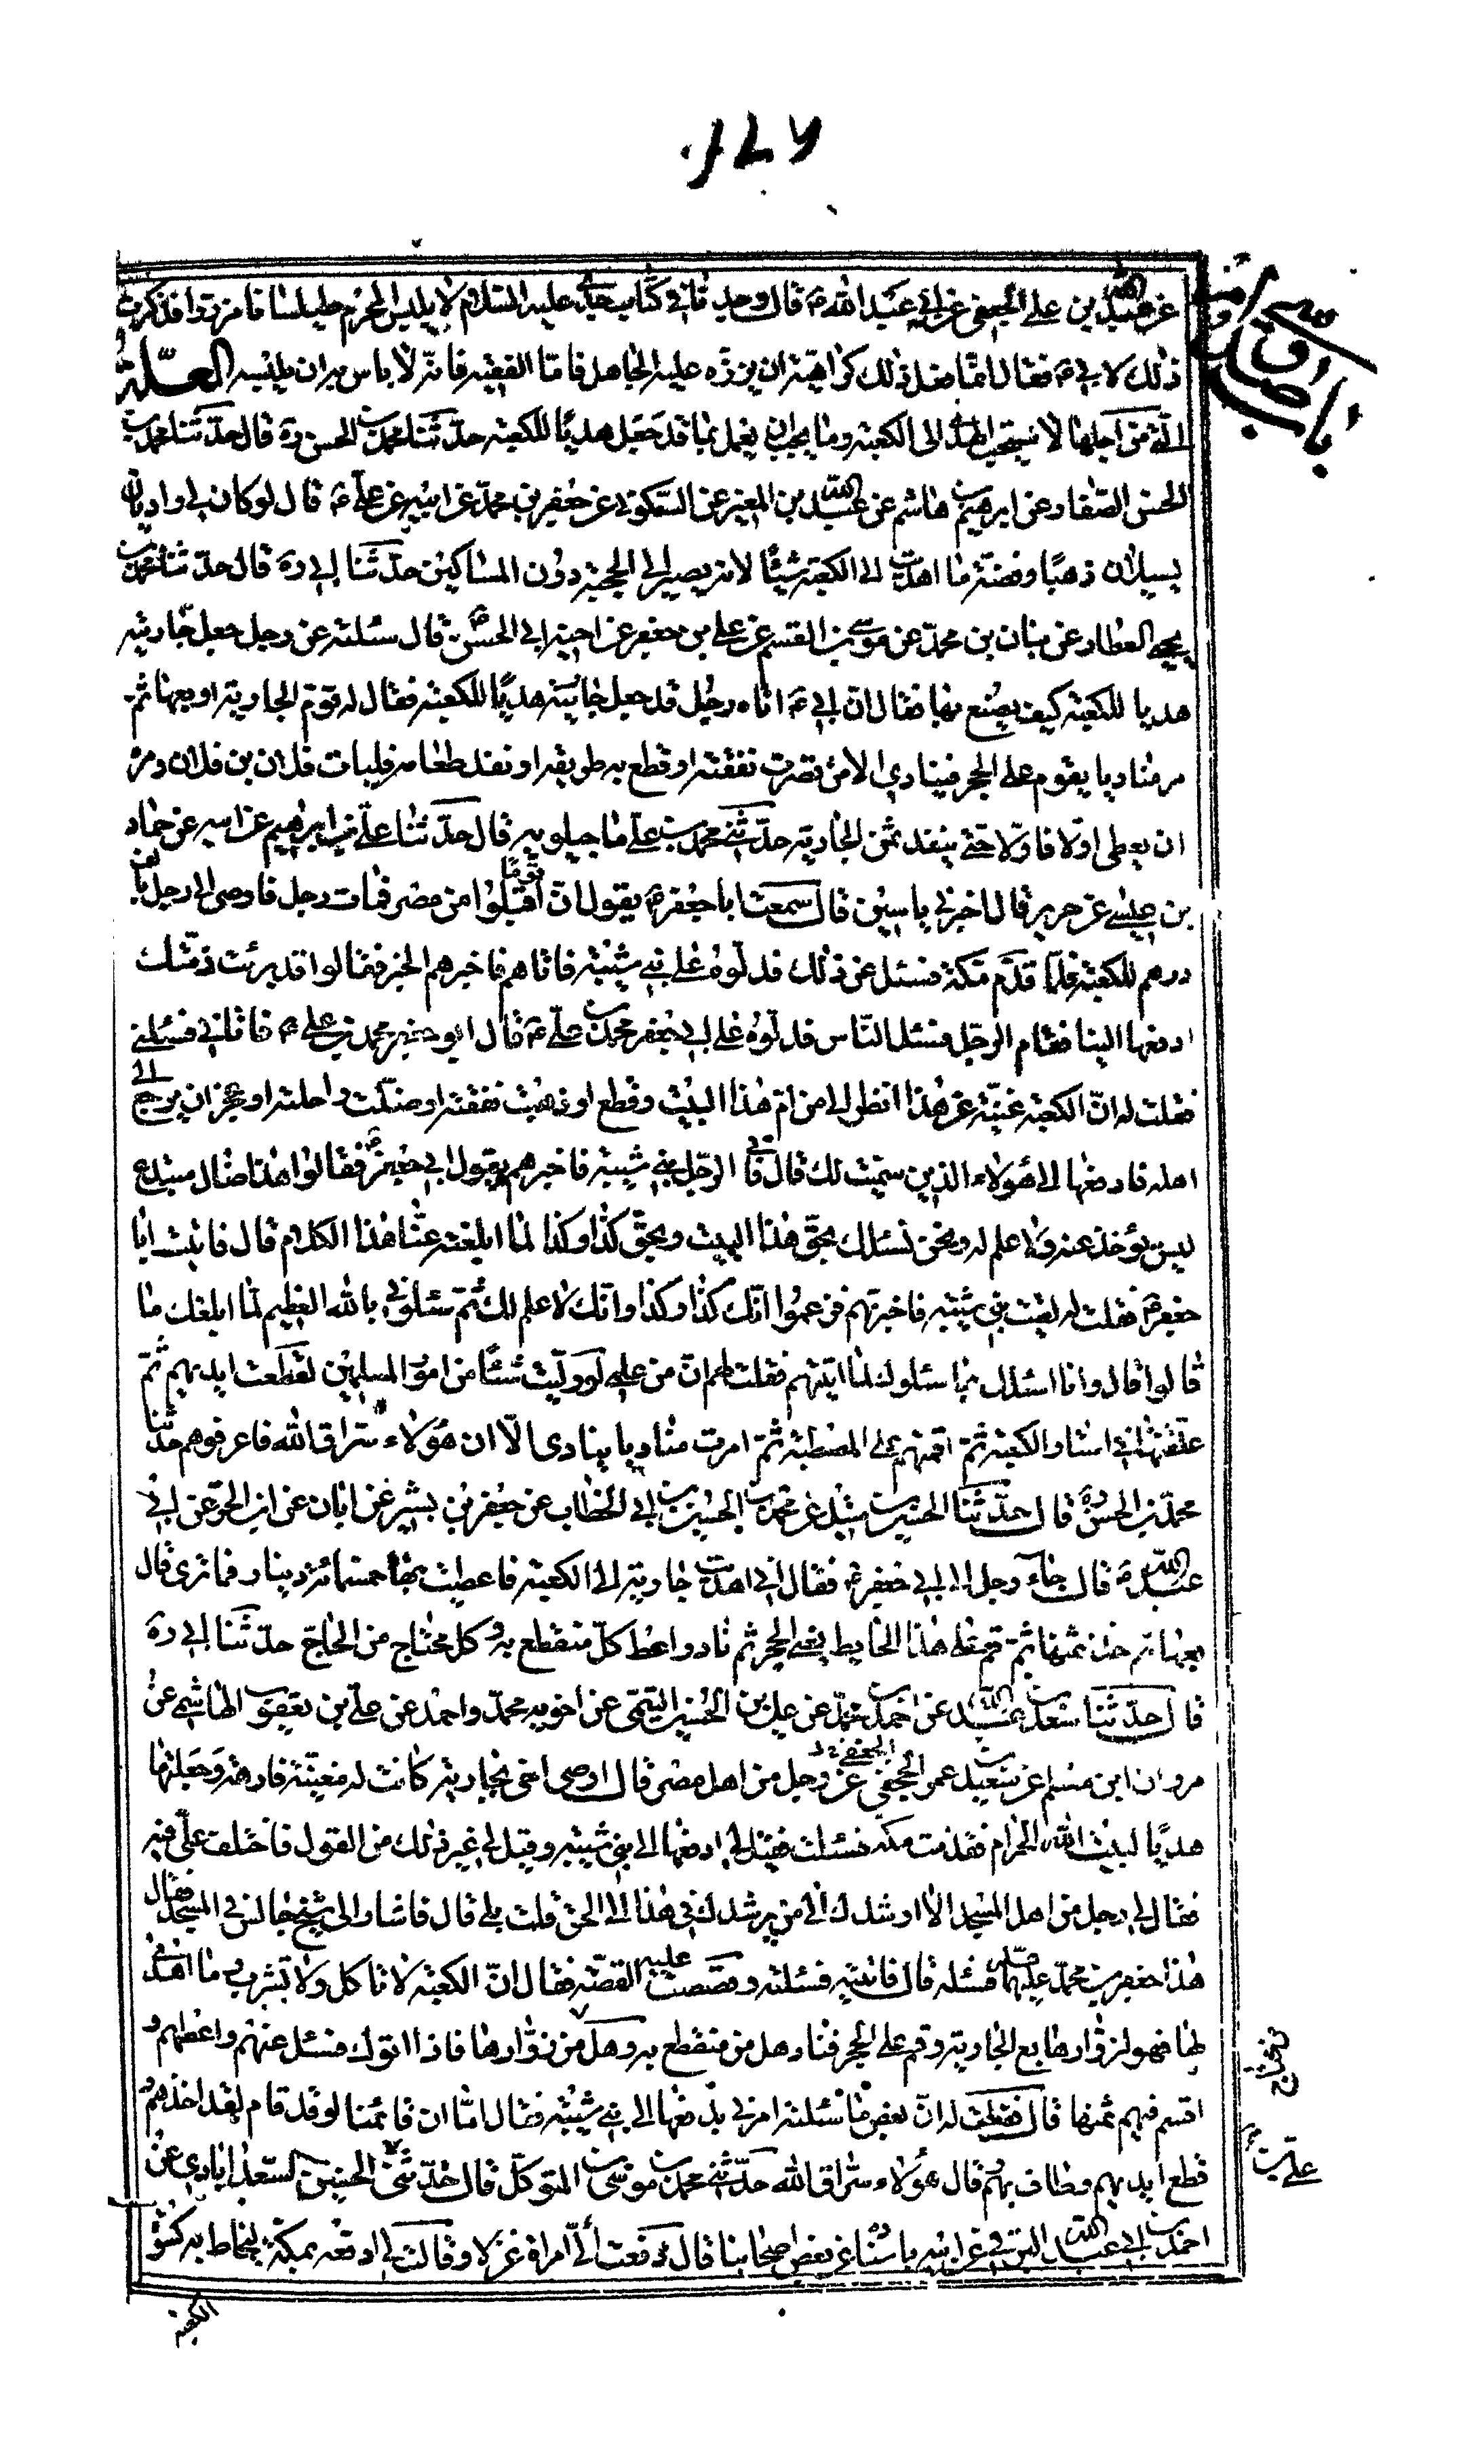 عن عبيد الله بن علي الحلبي عن ابي عبد الله ع قال وجدنا في كتاب جدي عليه السلام لا يلبس المحرم طيلسانا مزرورا فذكرت
ذلك لابي ع فقال انما فعل ذلك كراهية ان يزره عليه الجاهل فاما الفقيه فانه لا باس به ان يلبسه العلّة
التي من اجلها لا يستحب الهدي الى الكعبة وما يجب ان يعمل بما قد جعل هديًا للكعبة حدّثنا محمد بن الحسن ره قال حدّثنا محمد بن
الحسن الصفار عن ابرهيم بن هاشم عن عبد الله بن المغيرة عن السكوني عن جعفر بن محمد عن ابيه عن علي ع قال لو كان لي واديان
يسيلان ذهبًا وفضة ما اهديت الى الكعبة شيئًا لانه يصير الى الحجبة دون المساكين حدّثنا ابي ره قال حدّثنا محمد بن
يحيى العطار عن بنان بن محمد عن موسى بن القسم عن علي بن جعفر عن اخيه ابي الحسن ع قال سئلته عن رجل جعل جاريته
هديا للكعبة كيف يصنع بها فقال ان ابي ع اتاه رجل قد جعل جاريته هديًا للكعبة فقال له قوّم الجارية او بعها ثم
مر مناديا يقوم على الحجر فينادي الا من قصرت نفقته او قطع به طريقه او نفد طعامه فليات فلان بن فلان ومره
ان يعطي اولا فاولا حتى ينفد ثمن الجارية حدّثني محمد بن علي ماجيلويه قال حدّثنا علي بن ابرهيم عن ابيه عن حماد
بن عيسى عن حريز قال اخبرني ياسين قال سمعت ابا جعفر ع يقول ان قومًا اقبلوا من مصر فمات رجل فاوصى الى رجل بالف
درهم للكعبة فلما قدم مكة فسئل عن ذلك فدلّوه على بني شيبة فاتاهم فاخبرهم الخبر فقالوا قد برئت ذمتك
ادفعها الينا فقام الرجل فسئل الناس فدلّوه على ابي جعفر محمد بن علي ع قال ابو جعفر محمد بن علي ع فاتاني فسئلني
فقلت له ان الكعبة غنيّة عن هذا انظر الى من امّ هذا البيت وقطع او ذهبت نفقته او ضلّت راحلته او عجز ان يرجع الى
اهله فادفعها الى هؤلاء الذين سميت لك قال فاتى الرجل بني شيبة فاخبرهم بقول ابي جعفر ع فقالوا هذا ضال مبتدع
ليس يؤخذ عنه ولا علم له ونحن نسئلك بحق هذا البيت وبحق كذا وكذا لما ابلغته عنّا هذا الكلام قال فاتيت ابا
جعفر ع فقلت له لقيت بني شيبة فاخبرتهم فزعموا انك كذا وكذا وانك لا علم لك ثم سئلوني بالله العظيم لما ابلغك ما
قالوا قال وانا اسئلك بما سئلوك لما اتيتهم فقلت لهم ان من علمي لو وليت شيئًا من امور المسلمين لقطعت ايديهم ثم
علقتها في استار الكعبة ثم اقمتهم على المصطبة ثم امرت مناديا ينادي الا ان هؤلاء سرّاق الله فاعرفوهم حدّثنا
محمد بن الحسن ره قال حدّثنا الحسين بن متيل عن محمد بن الحسين بن ابي الخطاب عن جعفر بن بشير عن ابان عن ابن الحر عن ابي
عبد الله ع قال جاء رجل الى ابي جعفر ع فقال اني اهديت جارية الى الكعبة فاعطيت بها خمسمائة دينار فما ترى قال
بعها ثم خذ ثمنها ثم قم على هذا الحايط يعني الحجر ثم ناد واعط كل منقطع به وكل محتاج من الحاج حدّثنا ابي ره
قال حدّثنا سعد بن عبد الله عن احمد بن محمد عن علي بن الحسين التيمي عن اخويه محمد واحمد عن علي بن يعقوب الهاشمي عن
مروان ابن مسلم عن سعيد بن عمر الجعفي عن رجل من اهل مصر قال اوصى اخي بجارية كانت له مغنية فارهة وجعلها
هديًا لبيت الله الحرام فقدمت مكة فسئلت فقيل لي ادفعها الى بني شيبة وقيل لي غير ذلك من القول فاختلف علي فيه
فقال لي رجل من اهل المسجد الا ارشدك الى من يرشدك في هذا الى الحق قلت بلى قال فاشار الى شيخ جالس في المسجد فقال
هذا جعفر بن محمد عليهما السلام فسئله قال فاتيته فسئلته وقصصت عليه القصة فقال ان الكعبة لا تاكل ولا تشرب وما اهدي
لها فهو لزوّارها بع الجارية وقم على الحجر فناد هل من منقطع به وهل من زوّارها فاذا اتوك فسئل عنهم واعطهم و
اقسم فيهم ثمنها قال فقلت له ان بعض من سئلته امرني بدفعها الى بني شيبة فقال اما ان قائمنا لو قد قام لقد اخذهم و
قطع ايديهم وطاف بهم وقال هؤلاء سرّاق الله حدّثني محمد بن موسى بن المتوكل قال حدّثني علي بن الحسين السعدابادي عن
احمد بن ابي عبد الله البرقي عن ابيه باسناده عن بعض اصحابنا قال دفعت اليّ امراة غزلا وقالت لي ادفعه بمكة ليخاط به كسوة
الكعبة